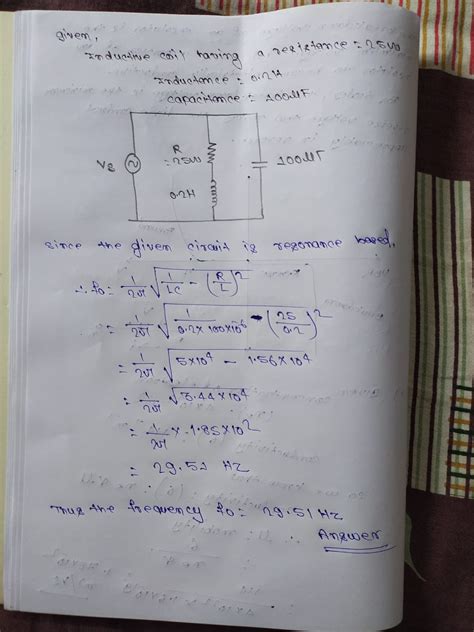 given,
Inductive coil having a resistance = 25Ω
Inductance = 0.2H
capacitance = 100μF
R
= 25Ω
Vs
100μF
0.2H
since the given circuit is resonance based,
∴ fo = 1/2π √(1/LC - (R/L)²)
= 1/2π √(1/(0.2 × 100×10⁻⁶) - (25/0.2)²)
= 1/2π √(5×10⁴ - 1.56×10⁴)
= 1/2π √(3.44×10⁴)
= 1/2π × 1.85×10²
= 29.51 Hz
Thus the frequency fo = 29.51 Hz
Answer